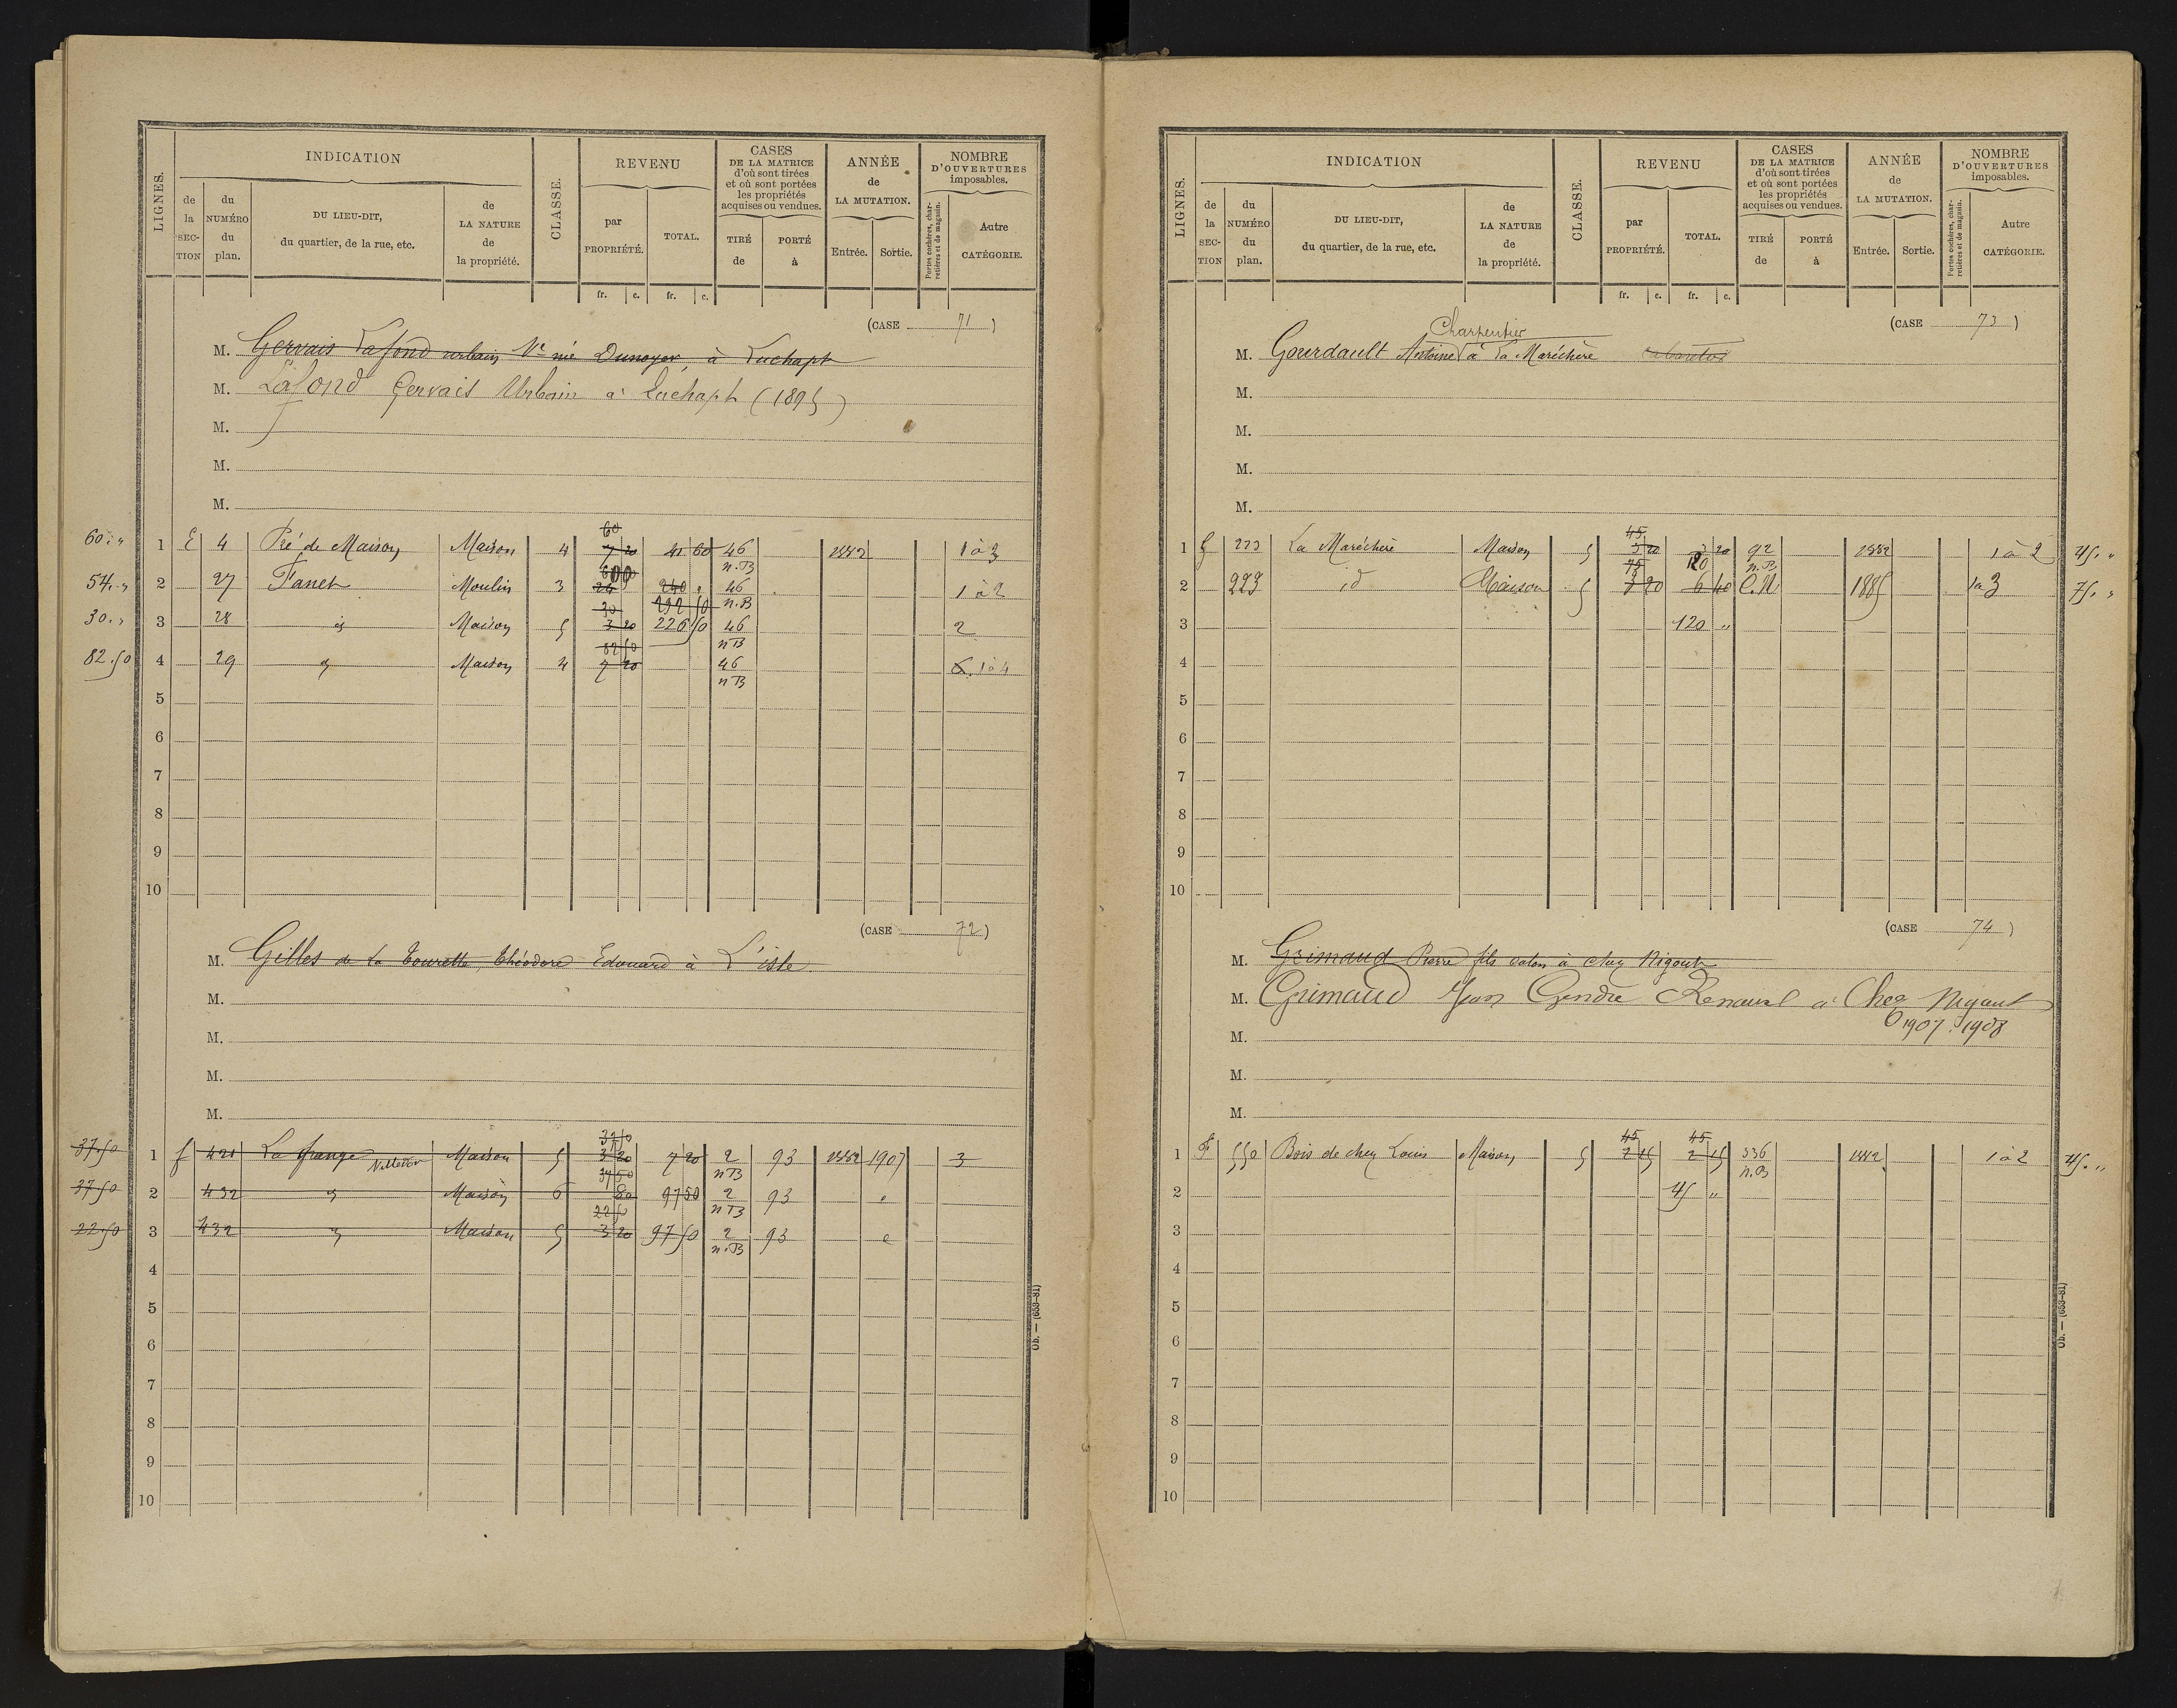 LIGNES.
INDICATION
de la SECTION
du NUMÉRO du plan.
DU LIEU-DIT, du quartier, de la rue, etc.
de LA NATURE de la propriété.
CLASSE.
REVENU
par PROPRIÉTÉ.
TOTAL.
fr. c. fr. c.
CASES DE LA MATRICE d'où sont tirées et où sont portées les propriétés acquises ou vendues.
TIRÉ de
PORTÉ à
ANNÉE de LA MUTATION.
Entrée. Sortie.
NOMBRE D'OUVERTURES imposables.
Portes cochères, charretières et de magasin.
Autre CATÉGORIE.
(CASE 71)
M. Gervais Lafond urbain Ve née Dunoyer, à Luchapt
M. Lafond Gervais Urbain à Luchapt (1895)
M.
M.
M.
60
60. " 1 E 4 Pré de Maison Maison 4 7 20 41 60 46 n.B 1882 1 à 3
600
54. " 2 27 Fanet Moulin 3 24 240 " 46 n.B 1 à 2
30 292 50
30. " 3 28 id Maison 5 3 20 226 50 46 n B 2
82 50
82.50 4 29 id Maison 4 7 20 46 n B 6. 1 à 4
5
6
7
8
9
10
(CASE 72)
M. Gilles de La Tourette, Théodore Edouard à L'isle
M.
M.
M.
M.
37 50
37.50 1 f 421 La Grange Maison 5 3 20 7 20 2 n B 93 1882 1907 3
37 50
37.50 2 432 id Maison 6 80 97 50 2 n B 93 "
22 50
22.50 3 432 id Maison 5 3 20 97 50 2 n.B 93 "
4
5
6
7
8
9
10
Ob. — (653-81)
LIGNES.
INDICATION
de la SECTION
du NUMÉRO du plan.
DU LIEU-DIT, du quartier, de la rue, etc.
de LA NATURE de la propriété.
CLASSE.
REVENU
par PROPRIÉTÉ.
TOTAL.
fr. c. fr. c.
CASES DE LA MATRICE d'où sont tirées et où sont portées les propriétés acquises ou vendues.
TIRÉ de
PORTÉ à
ANNÉE de LA MUTATION.
Entrée. Sortie.
NOMBRE D'OUVERTURES imposables.
Portes cochères, charretières et de magasin.
Autre CATÉGORIE.
(CASE 73)
Charpentier
M. Gourdault Antoine à La Maréchère
M.
M.
M.
M.
45
1 223 La Maréchère Maison 5 3 20 3 20 92 n.B 1882 1 à 2 45. "
75 120
2 223 id Maison 5 3 20 6 40 C.N 1885 1 à 3 75. "
3 120 "
4
5
6
7
8
9
10
(CASE 74)
M. Grimaud Pierre fils à chez Nigout
M. Grimaud Jean Gendre Renaud à Chez Nigaut
1907. 1908
M.
M.
M.
45 45
1 F 550 Bois de chez Louis Maison 5 2 15 2 15 336 n.B 1882 1 à 2 45. "
2 45 "
3
4
5
6
7
8
9
10
Ob. — (653-81)